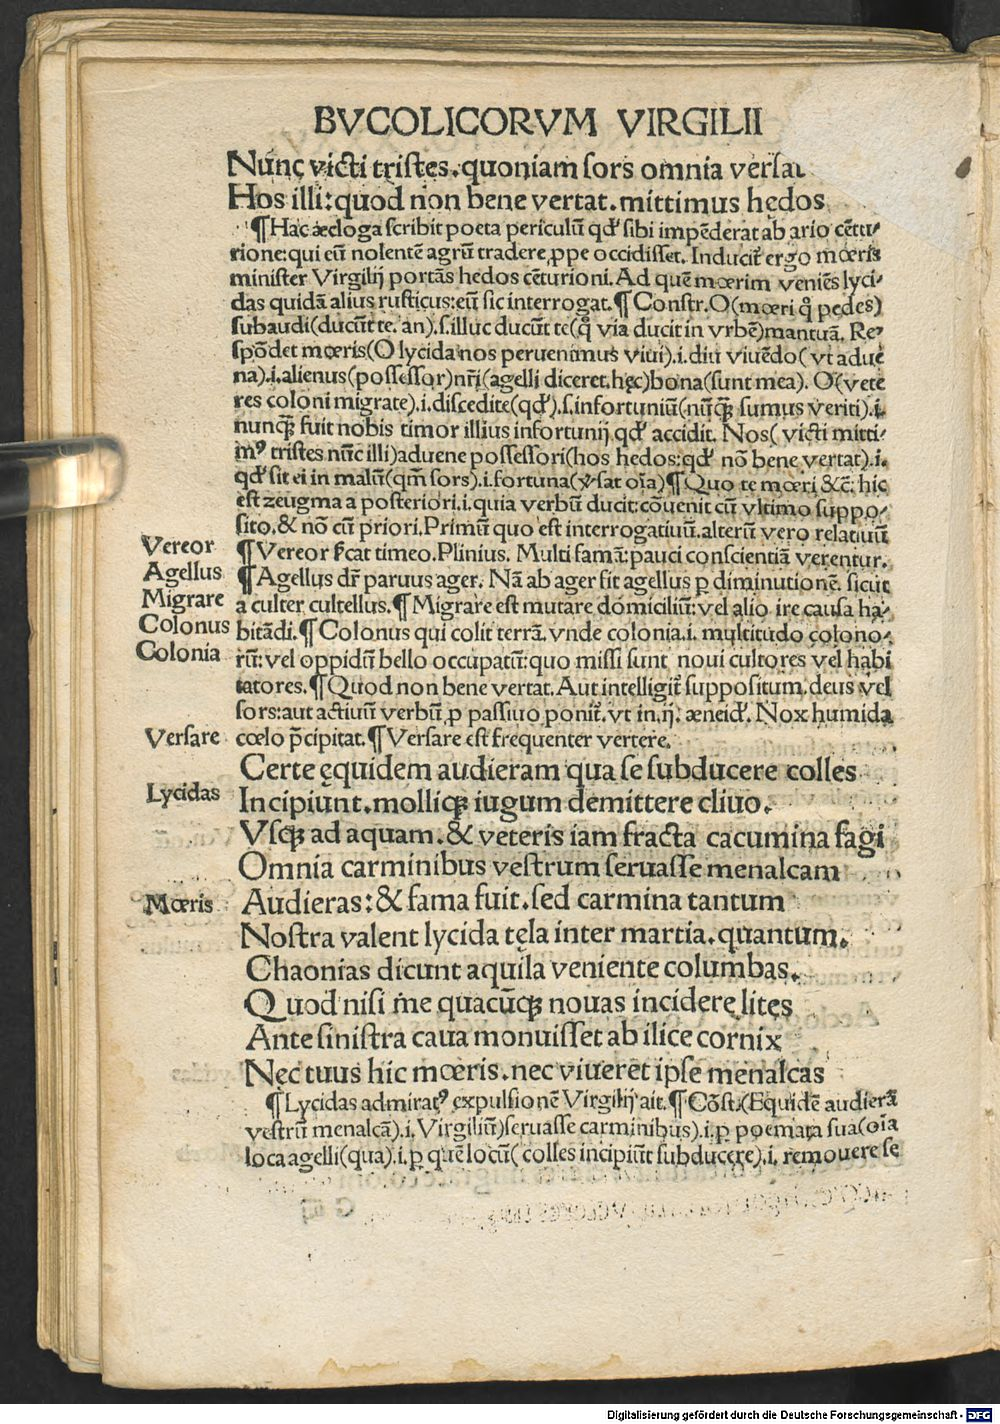 BVCOLICORVM VIRGILII
Nunc victi tristes.quoniam sors omnia versat
Hos illi:quod non bene vertat.mittimus hędos
¶Hac æcloga scribit poeta periculū qđ sibi impēderat ab ario cētu-
rione:qui eū nolentē agrū tradere ꝓpe occidisset. Inducit̄ ergo mœris
minister Virgilij portās hedos cēturioni. Ad quē mœrim veniēs lyci-
das quidā alius rusticus:eū sic interrogat.¶ Constr. O(mœri q̊ pedes)
subaudi(ducūt te. an).s.illuc ducūt te(q̊ via ducit in vrbē)mantuā. Re-
spōdet mœris(O lycida nos peruenimus viui).i.diu viuēdo( vt adue
na).i.alienus(possessor)nr̄i(agelli diceret.hęc)bona(sunt mea). O(vete
res coloni migrate).i.discedite(qđ).s.infortuniū(nūꝗ sumus veriti).i.
nunꝗ fuit nobis timor illius infortunij qđ accidit. Nos( victi mitti-
mꝰ tristes nūc illi)aduene possessori(hos hedos:qđ nō bene vertat).i.
qđ sit ei in malū(qm̄ sors).i.fortuna(v̉sat oīa)¶Quo te mœri &c̄. hic
est zeugma a posteriori.i.quia verbū ducit:cōuenit cū vltimo suppo-
sito.& nō cū priori.Primū quo est interrogatiuū.alterū vero relatiuū
Vereor ¶Vereor s̄cat timeo.Plinius. Multi famā:pauci conscientiā verentur.
Agellus ¶Agellus dr̄ paruus ager. Nā ab ager fit agellus ꝑ diminutionē. sicut
Migrare a culter cultellus.¶Migrare est mutare domiciliū:vel alio ire causa ha-
Colonus bitādi.¶Colonus qui colit terrā.vnde colonia.i. multitudo colono-
Colonia rū:vel oppidū bello occupatū:quo missi sunt noui cultores vel habi
tatores.¶Quod non bene vertat.Aut intelligit̄ suppositum.deus vel
sors:aut actiuū verbū ꝓ passiuo ponit̄.vt in.ij. æneiđ. Nox humida
Versare cœlo p̄cipitat.¶Versare est frequenter vertere.
Certe ęquidem audieram qua se subducere colles
Lycidas Incipiunt.molliꝗ; iugum demittere cliuo.
Vsꝗ; ad aquam.& veteris iam fracta cacumina fagi
Omnia carminibus vestrum seruasse menalcam
Mœris Audieras:& fama fuit.sed carmina tantum
Nostra valent lycida tęla inter martia.quantum.
Chaonias dicunt aquila veniente columbas.
Quod nisi me quacūꝗ; nouas incidere lites
Ante sinistra caua monuisset ab ilice cornix
Nec tuus hic mœris.nec viueret ipse menalcas
¶Lycidas admiratꝰ expulsionē Virgilij ait.¶Cōst.(Equidē audierā
vestrū menalcā).i.Virgiliū)seruasse carminibus).i.ꝑ poemata sua(oīa
loca agelli(qua).i.ꝑ quē locū( colles incipiūt subducere).i. remouere se
Digitalisierung gefördert durch die Deutsche Forschungsgemeinschaft - DFG